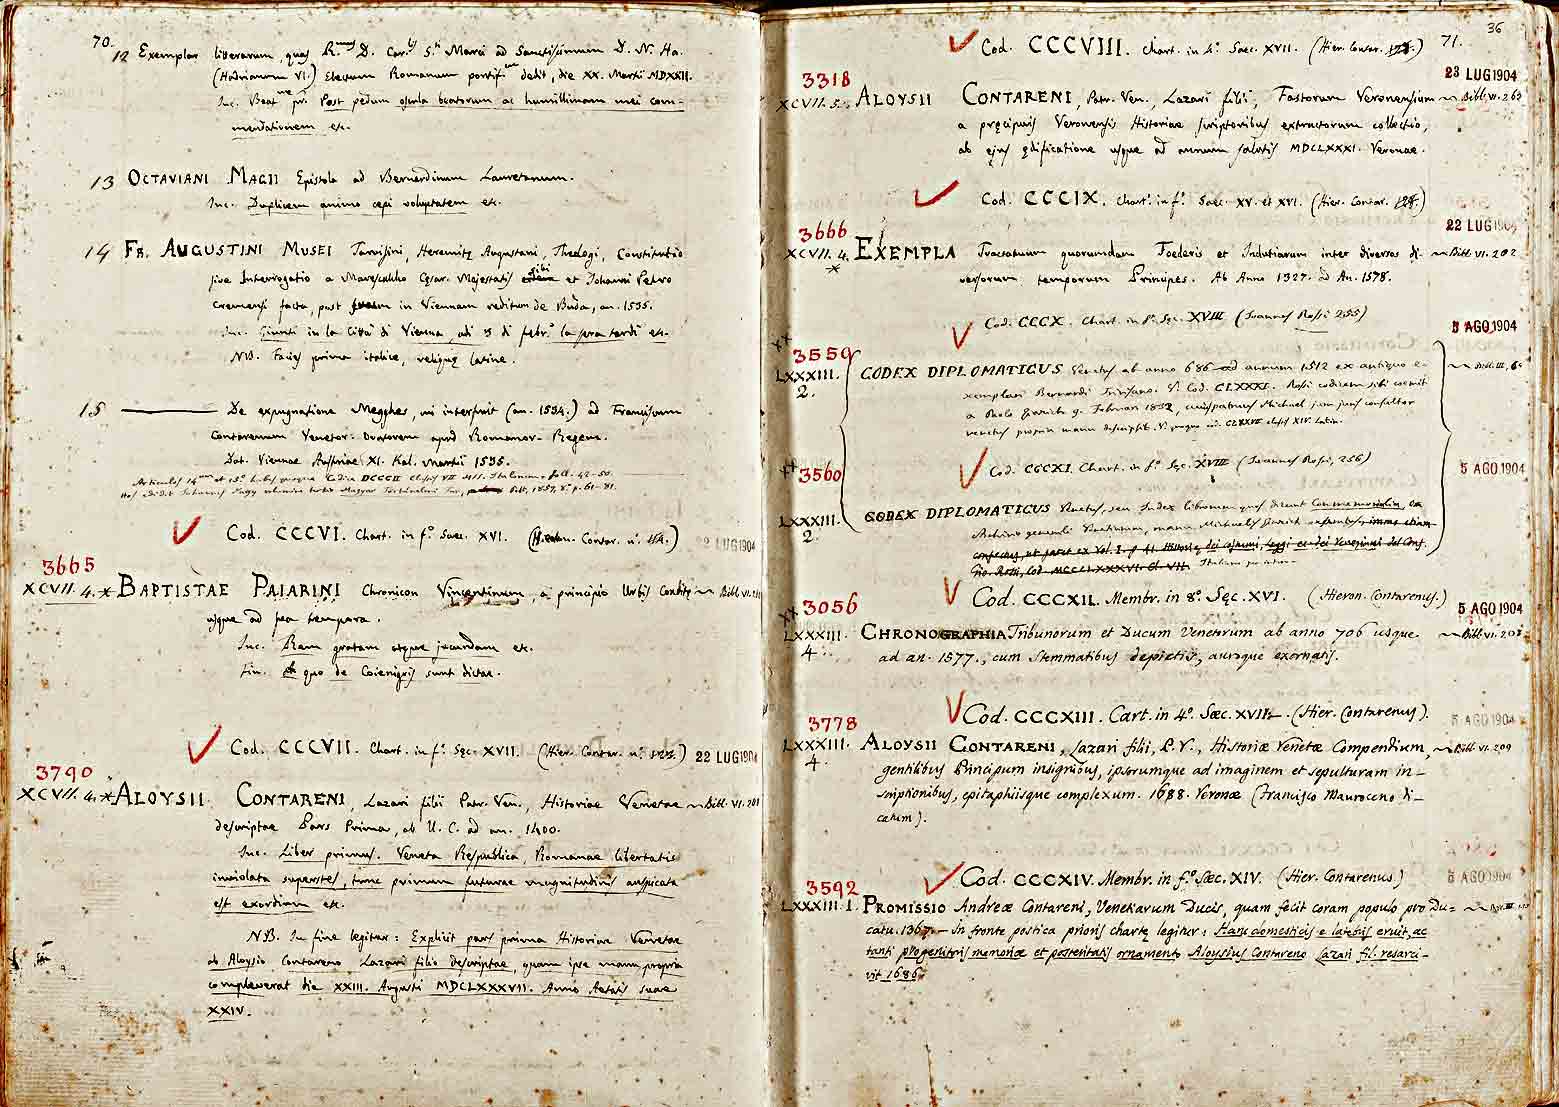 70.
12 Exemplar literarum, quas R.mus D. Car.lis S.ti Marci ad Sanctissimum D. N. Ha.
(Hadrianum VI.) Electum Romanum pontif.em dedit, die XX. Martii MDXXII.
Inc. Beat.me pr. Post pedum oscula beatorum ac humillimam mei com-
mendationem etc.
13 OCTAVIANI MAGII Epistola ad Bernardinum Lauretanum.
Inc. Duplicem animo cepi voluptatem etc.
14 FR. AUGUSTINI MUSEI Tarvisini, Heremitę Augustani, Theologi, Constitutio
sive Interrogatio a Marescalcho Cęsar. Majestatis sibi et Iohanni Petro
Cremensi facta, post in Viennam reditum de Buda, an. 1535.
Inc. Giunti in la Città di Vienna, adi 5 di febr.o la sera tardi etc.
NB. Facies prima italice, reliquę latine.
15 ——— De expugnatione Megghes, cui interfuit (an. 1534.) ad Franciscum
Contarenum Venetor. Oratorem apud Romanor. Regem.
Dat. Viennae Austriae XI. Kal. Martii 1535.
Articulos 14um et 15um Codex DCCCII classis VII MSS. Italicorum fol. 42-50.
1857, 8.o p. 61-81.
Cod. CCCVI. Chart. in f.o Saec. XVI. (Hieron. Contar. n.o 164.)
22 LUG 1904
3665
XCVII. 4. * BAPTISTAE PAJARINI Chronicon Vincentinum, a principio Urbis Conditę ~ Bibl. VI.
usque ad sea tempora.
Inc. Rem gratam atque jucundam etc.
Fin. quo de Coienigris sunt dictae.
Cod. CCCVII. Chart. in f.o Sęc. XVII. (Hier. Contar. n.o 125.) 22 LUG 1904
3790
XCVII. 4. * ALOYSII CONTARENI, Lazari filii Patr. Ven., Historiae Venetae ~ Bibl. VI. 201
descriptae Pars Prima, ab U. C. ad an. 1400.
Inc. Liber primus. Veneta Respublica, Romanae libertatis
inviolata superstes, tunc primum futurae magnitudinis auspicata
est exordium etc.
NB. In fine legitur: Explicit pars prima Historiae Venetae
ab Aloysio Contareno Lazari filio descriptae, quam ipse manu propria
compleverat die XXIII. Augusti MDCLXXXVII. Anno Aetatis suae
XXIV.
36
71.
Cod. CCCVIII. Chart. in 4.o Saec. XVII. (Hier. Contar.)
23 LUG 1904
3318
XCVII. 5. ALOYSII CONTARENI, Patr. Ven., Lazari filii, Fastorum Veronensium ~ Bibl. VI. 263
a pręcipuis Veronensis Historiae scriptoribus extractorum collectio,
ab ejus ędificatione usque ad annum salutis MDCLXXXI. Veronae.
Cod. CCCIX. Chart. in f.o Saec. XV. et XVI. (Hier. Contar. 128.)
22 LUG 1904
3666
XCVII. 4. * EXEMPLA Tractatuum quorumdam Foederis et Indutiarum inter diversos di- ~ Bibl. VI. 202
versorum temporum Principes. Ab Anno 1327. ad An. 1578.
Cod. CCCX. Chart. in f.o Sęc. XVIII (Joannes Rossi 255)
5 AGO 1904
** 3559
LXXXIII. 2. CODEX DIPLOMATICUS Venetus ab anno 686 ad annum 1512 ex antiquo e- ~ Bibl. III, 6
xemplari Bernardi Trivisano. V. Cod. CLXXXI. Rossi codicem sibi comit
a Paolo 9. Februari 1832, cuius patruus Michael jam juris consultor
venetus propria manu descripsit. classis XIV. Latin.
** 3560
Cod. CCCXI. Chart. in f.o Sęc. XVIII (Joannes Rossi, 256)
5 AGO 1904
LXXXIII. 2. CODEX DIPLOMATICUS Venetus, seu Index librorum quos dicunt Commemorialium, ex
Archivo generali Venetiarum, manu Michaelis
confectus, ut patet ex Vol. I. p. 41. Historię dei costumi, leggi ec. dei Veneziani del Cons.
Gio. Rossi, Cod. MCCCLXXXVI. Cl. VII. Italicum
Cod. CCCXII. Membr. in 8.o Sęc. XVI. (Hieron. Contarenus.)
5 AGO 1904
** 3056
LXXXIII. 4. CHRONOGRAPHIA Tribunorum et Ducum Venetorum ab anno 706 usque ~ Bibl. VI. 208
ad an. 1577., cum stemmatibus depictis, auroque exornatis.
Cod. CCCXIII. Cart. in 4.o Sæc. XVII. (Hier. Contarenus).
5 AGO 1904
3778
LXXXIII. 4. ALOYSII CONTARENI, Lazari filii, P. V., Historiæ Venetæ Compendium, ~ Bibl. VI. 209
gentilibus Principum insignibus, ipsorumque ad imaginem et sepulturam in-
scriptionibus, epitaphiisque complexum. 1688. Veronæ (Francisco Mauroceno di-
catum).
Cod. CCCXIV. Membr. in f.o Sæc. XIV. (Hier. Contarenus.)
5 AGO 1904
3592
LXXXIII. 1. PROMISSIO Andreæ Contareni, Venetiarum Ducis, quam fecit coram populo pro Du- ~
catu. 1367. — In fronte postica prioris chartę legitur: Hanc domesticis e latebris eruit, ac
tanti progenitoris memoriæ et posteritatis ornamento Aloysius Contareno Lazari fil. resarci-
vit 1686.